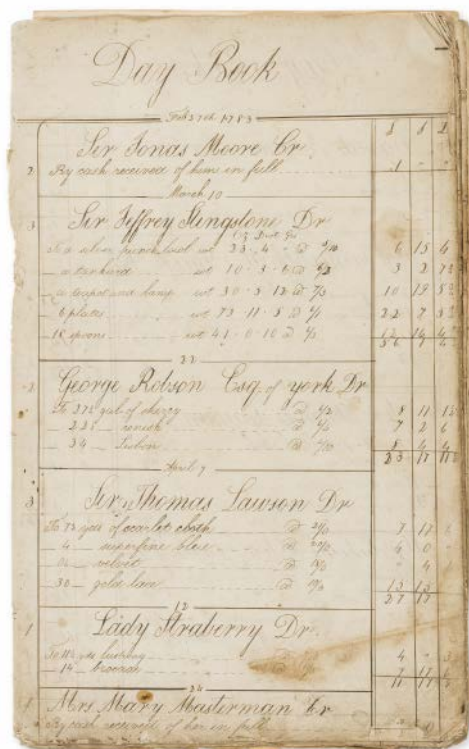 Day Book
Feb 27th 1783
£ s d
2 Sir Jonas Moore Cr
By cash received of him in full 1 " "
March 10
3 Sir Jeffrey Slingstone Dr
Oz Dwt Gr
To a silver punch bowl wt 23 . 4 " @ 5/10 6 15 4
_ a tankard wt 10 . 3 . 6 @ 3 2
_ a teapot and lamp wt 30 . 3 12 @ 7/3 10 19
_ 6 plates wt 73 . 11 . 5 @ 6/1 22 7
18 spoons wt 41 . 0 . 10 @ 12 16
56 1
22
2 George Robson Esq. of york Dr
To gal of sherry @ 8 11
_ renish @ 7 2 6
_ 34 _ Lisbon @ 8 4
23 17
April 7
3 Sir Thomas Lawson Dr
To yds of scarlet cloth @ 7 17
_ 4 _ superfine blue @ 20/0 4 0
velvet @ 4
30 _ gold lace @ 15 15
27 17
12
1 Lady Straberry Dr
To yds lustring 4 " 3
_ 14 _ brocade 7
11
24
1 Mrs Mary Masterman Cr
By cash received of her in full